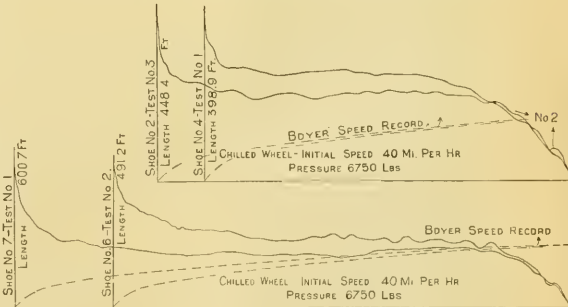 SHOE NO 2-TEST NO. 3
LENGTH 448 4 FT
SHOE NO 4-TEST NO 1
LENGTH 398.9 FT
No 2
BOYER SPEED RECORD.
CHILLED WHEEL-INITIAL SPEED 40 MI. PER HR
PRESSURE 6750 LBS
SHOE NO 7-TEST NO 1
LENGTH 600.7 FT
SHOE NO. 6-TEST NO. 2
LENGTH 491.2 FT
BOYER SPEED RECORD
CHILLED WHEEL INITIAL SPEED 40 MI PER HR
PRESSURE 6750 LBS